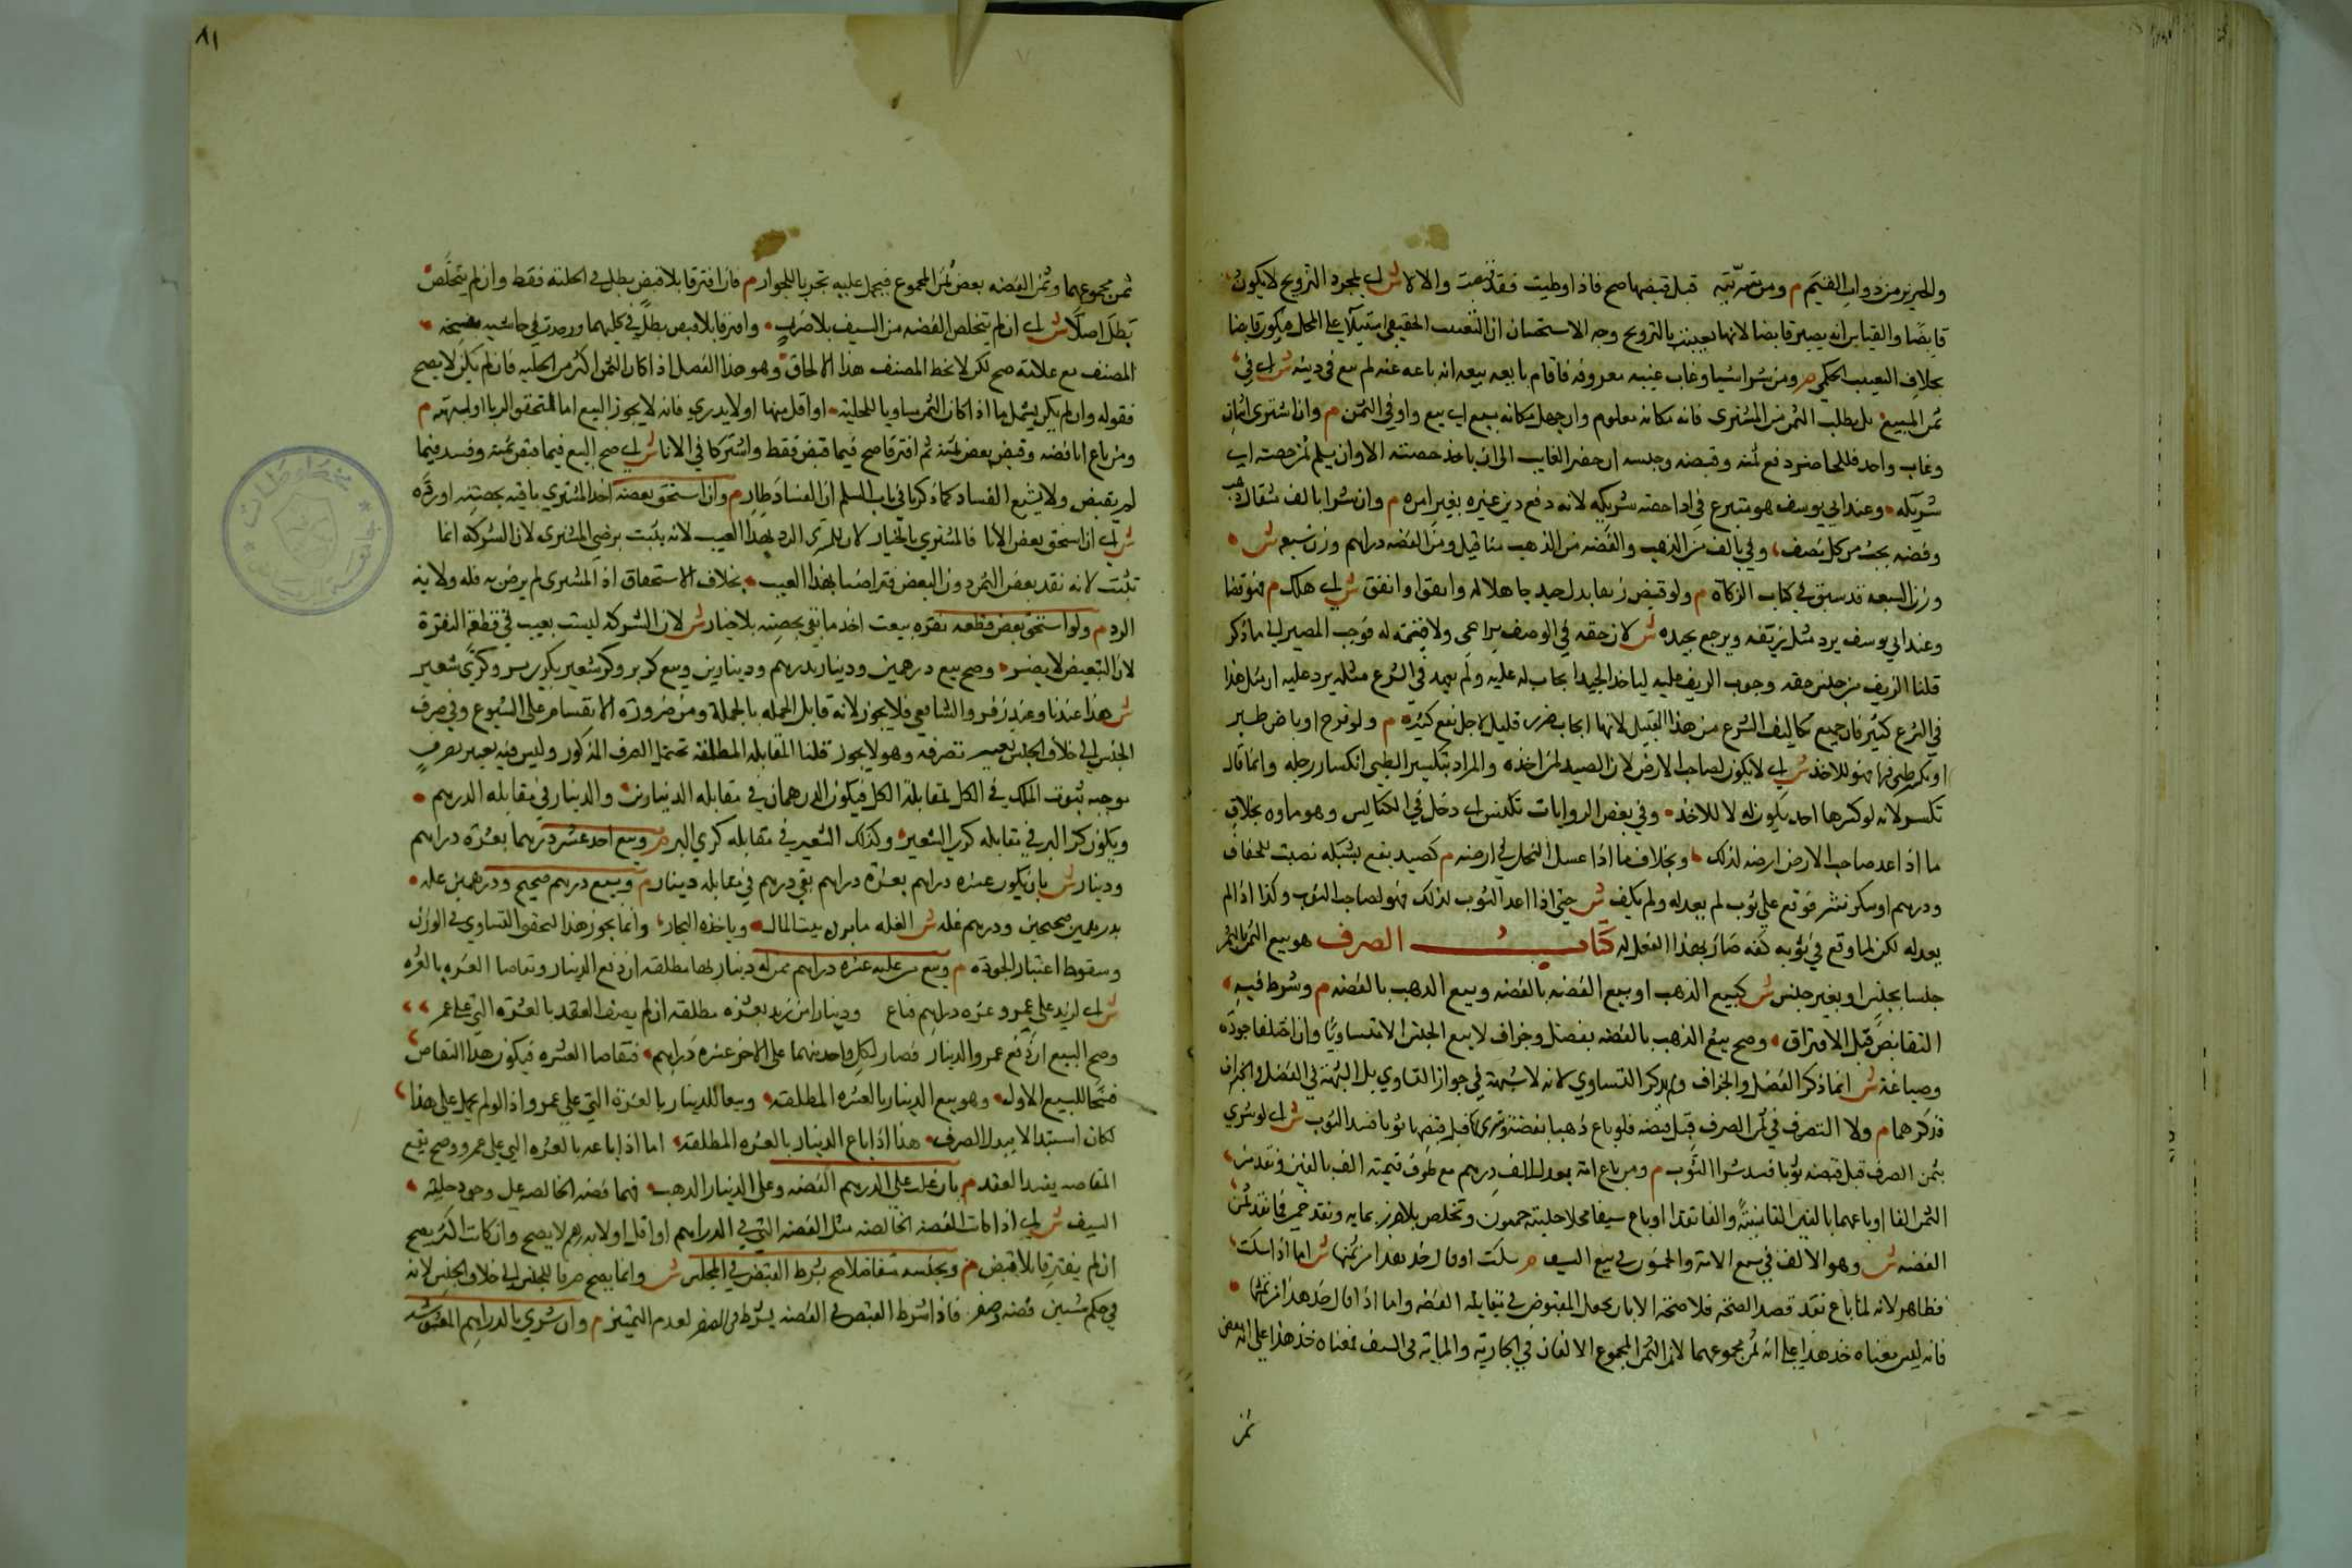 والخنزير من ذوات القيم م ومن زوج مشريته قبل قبضها صح فاذا وطيت فقد قبضت والا لا ش اي بمجرد التزويج لا يكون
قابضا والقياس انه يصير قابضا لانها تعيبت بالتزويج وجه الاستحسان ان التعييب الحقيقي استيلا على المحل فيكون قابضا
بخلاف التعييب الحكمي م ومن شرا شيا وغاب غيبة معروفة فاقام بايعه بينه انه باعه عنه لم يبع في دينه ش اي في
ثمن المبيع بل يطلب الثمن من المشتري فانه مكانه معلوم وان جهل مكانه بيع اي بيع واوفي الثمن م وان اشترى اثنان
وغاب واحد فللحاضر دفع ثمنه وقبضه وحبسه ان حضر الغايب الى ان ياخذ حصته الا وان يسلم ثمن حصته اي
شريكه وعند ابي يوسف هو متبرع في ادا حصة شريكه لانه دفع دين غيره بغير امره م وان شرا بالف مثقال ذهب
وفضه يجب من كل نصف وفي بالف من الذهب والفضه من الذهب مثاقيل ومن الفضه دراهم وزن سبعه ش
وزن السبعه قد سبق في كتاب الزكاة م ولو قبض زيفا بدل جيد جاهلا له وانفق او نفق ش اي هلك م فهو قضا
وعند ابي يوسف يرد مثل زيفه ويرجع بجيده ش لان حقه في الوصف مراعى ولا قيمة له فوجب المصير الى ما ذكر
قلنا الزيف من جنس حقه ووجوب رد الزيف عليه لياخذ الجيد ايجاب له عليه ولم يعهد في الشرع مثله يرد عليه ان مثل هذا
في الشرع كثير فان جميع تكاليف الشرع من هذا القبيل لانها ايجاب ضرر قليل لاجل نفع كثيره م ولو فرخ او باض طير
او تكسر ظبي فيها فهو للاخذ ش اي لا يكون لصاحب الارض لان الصيد لمن اخذه والمراد بتكسير الظبي انكسار رجله وانما قال
تكسر لانه لو كسرها احد يكون له لا للاخذ وفي بعض الروايات تكنس اي دخل في الكناس وهو ماواه بخلاف
ما اذا اعد صاحب الارض ارضه لذلك وبخلاف ما اذا عسل النحل في ارضه م كصيد يقع بشبكه نصبت للجفاف
ودرهم او سكر نثر فوقع على ثوب لم يعد له ولم يكف ش حتى اذا اعد الثوب لذلك فهو لصاحب الثوب وكذا اذا لم
يعد له لكن لما وقع في ثوبه كفه صار بهذا الفعل له كتاب الصرف هو بيع الثمن بالثمن
جنسا بجنس او بغير جنس ش كبيع الذهب او بيع الفضه بالفضه وبيع الذهب بالفضه م وشرط فيه
التقابض قبل الافتراق وصح بيع الذهب بالفضه بفضل وجزاف لا بيع الجنس الا متساويا وان اختلفا جودة
وصياغة ش انما ذكر الفضل والجزاف ولم يذكر التساوي لانه لا شبهة في جواز التساوي بل الشبهة في الفضل والجزاف
فذكرهما م ولا التصرف في ثمن الصرف قبل قبضه فلو باع ذهبا بفضة وشرى بها قبل قبضها ثوبا فسد الثوب ش اي لو شري
بثمن الصرف قبل قبضه ثوبا فسد شرا الثوب م ومن باع امة تعدل الف درهم مع طوق قيمته الف بالفين ونقد من
الثمن الفا او باعها بالفين الف نسيئة والف نقد او باع سيفا محلا حليته خمسون وتخلص بلا ضرر بمايه ونقد خمسين فما نقد ثمن
الفضه ش وهو الالف في بيع الامة والخمسون في بيع السيف م سكت او قال خذ هذا من ثمنها ش اما اذا سكت
فظاهر لانه لما باع فقد قصد الصحة فلا صحة الا بان يجعل المقبوض في مقابلة الفضه واما اذا قال خذ هذا من ثمنها
فانه ليس معناه خذ هذا على انه ثمن مجموعهما لان الثمن المجموع الالفان في الجارية والماية في السيف فمعناه خذ هذا على انه بعض
ثمن
٨١
ثمن مجموعهما وثمن الفضه بعض ثمن المجموع فيحمل عليه تحريا للجواز م فان افترقا بلا قبض بطل في الحلية فقط وان لم يتخلص
بطل اصلا ش اي ان لم يتخلص الفضه من السيف بلا ضرر وافترقا بلا قبض بطل في كليهما ووجدت في حاشية نسخة
المصنف مع علامة صح لكن لا بخط المصنف هذا الالحاق وهو هذا الفصل اذا كان الثمن اكثر من الحليه فان لم يكن لا يصح
فقوله وان لم يكن يشمل ما اذا كان الثمن مساويا للحلية او اقل منها او لا يدري فانه لا يجوز البيع اما لتحقق الربا او لشبهته م
ومن باع انا فضه وقبض بعض ثمنه ثم افترقا صح فيما قبض فقط واشتركا في الانا ش اي صح البيع فيما قبض ثمنه وفسد فيما
لم يقبض ولا يشيع الفساد كما ذكرنا في باب السلم ان الفساد طار م وان استحق بعضه اخذ المشتري باقيه بحصته او رده
ش اي ان استحق بعض الانا فالمشتري بالخيار لان له الرد بهذا العيب لانه يثبت برضى المشتري لان الشركة انما
تثبت لانه نقد بعض الثمن دون البعض فتراضيا بهذا العيب بخلاف الاستحقاق اذ المشتري لم يرض به فله ولاية
الرد م ولو استحق بعض قطعه نقره بيعت اخذ ما بقي بحصته بلا خيار ش لان الشركة ليست بعيب في قطعة النقرة
لان التبعيض لا يضر وصح بيع درهمين ودينار بدرهم ودينارين وبيع كر بر وكر شعير بكري بر وكري شعير
ش هذا عندنا وعند زفر والشافعي فلا يجوز لانه قابل الجمله بالجملة ومن ضرورته الانقسام على الشيوع وفي صرف
الجنس الى خلاف الجنس تغيير تصرفه وهو لا يجوز قلنا المقابله المطلقة تحتمل الصرف المذكور وليس فيه تغيير تصرف
موجبه ثبوت الملك في الكل بمقابلة الكل فيكون الدرهمان في مقابلة الدينارين والدينار في مقابلة الدرهم
ويكون كر البر في مقابلة كري الشعير وكذلك الشعير في مقابلة كري البر م وبيع احد عشر درهما بعشرة دراهم
ودينار ش بان يكون عشرة دراهم بعشرة دراهم بقي درهم في مقابلة دينار م وبيع درهم صحيح ودرهمين غلة
بدرهمين صحيحين ودرهم غله ش الغله ما يرد بيت المال وياخذه التجار وانما يجوز هذا لتحقق التساوي في الوزن
وسقوط اعتبار الجودة م وبيع من عليه عشرة دراهم ممن له دينار بها مطلقه ان دفع الدينار وتقاصا العشره بالعشره
ش اي لزيد على عمرو عشرة دراهم فباع ودينارا من زيد بعشرة مطلقة ان لم يضف العقد بالعشرة التي على عمر
وصح البيع ان دفع عمرو الدينار فصار لكل واحد منهما على الاخر عشرة دراهم فتقاصا العشره فيكون هذا التقاص
فسخا للبيع الاول وهو بيع الدينار بالعشره المطلقه وبيعا للدينار بالعشرة التي على عمرو اذ لو لم يحمل على هذا
لكان استبدالا ببدل الصرف هذا اذا باع الدينار بالعشره المطلقة اما اذا باعه بالعشره التي على عمرو صح يقع
المقاصه بنفس العقد م فان غلب على الدرهم الفضه وعلى الدينار الذهب فهما فضه وذهب
السيف ش اي اذا كانت الفضه الخالصه مثل الفضه التي في الدراهم او اقل او لا يدرى لا يصح وان كانت اكثر يصح
ان لم يفترقا بلا قبض م وبجنسه متفاضلا صح بشرط القبض في المجلس ش وانما يصح صرفا للجنس الى خلاف الجنس لانه
في حكم شيئين فضه وصفر فاذا شرط القبض في الفضه يشترط في الصفر لعدم التميز م وان شري بالدراهم المغشوشه